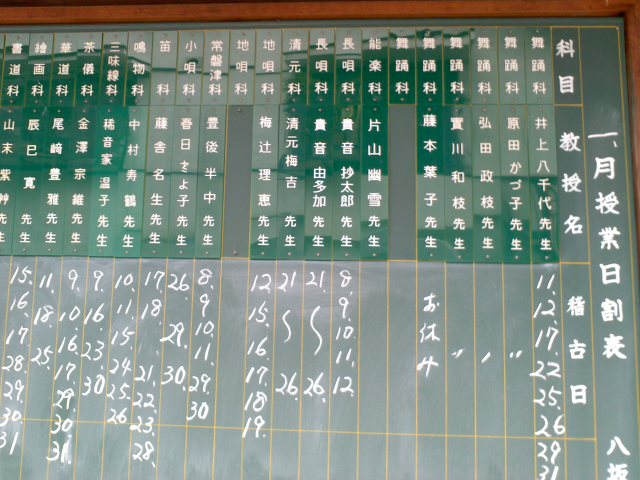 一月授業日割表
八坂
科目 教授名 稽古日
舞踊科 井上八千代先生 11. 12. 17. 22 25. 26 29. 31
舞踊科 原田かづ子先生 〃
舞踊科 弘田政枝先生
舞踊科 實川和枝先生 〃
舞踊科 藤本葉子先生 お休み
舞踊科
能楽科 片山幽雪先生
長唄科 貴音抄太郎先生 8. 9. 10. 11. 12.
長唄科 貴音由多加先生 21. 〜 26.
清元科 清元梅吉先生 21 〜 26.
地唄科 梅辻理恵先生 12. 15. 16. 17. 18. 19.
地唄科
常磐津科 豊後半中先生 8. 9. 10. 11. 29. 30
小唄科 春日とよ子先生 26. 29. 30.
笛科 藤舎名生先生 17. 18. 21. 22. 23. 28.
鳴物科 中村寿鶴先生 10. 11. 15. 24. 25. 26
三味線科 稀音家温子先生
茶儀科 金澤宗維先生 9. 16. 23. 30
華道科 尾﨑豊雅先生 9. 10. 16. 17. 29. 30. 31.
繪画科 辰巳寛先生 11. 18. 25.
書道科 山末紫艸先生 15. 16. 17. 28. 29. 30 31